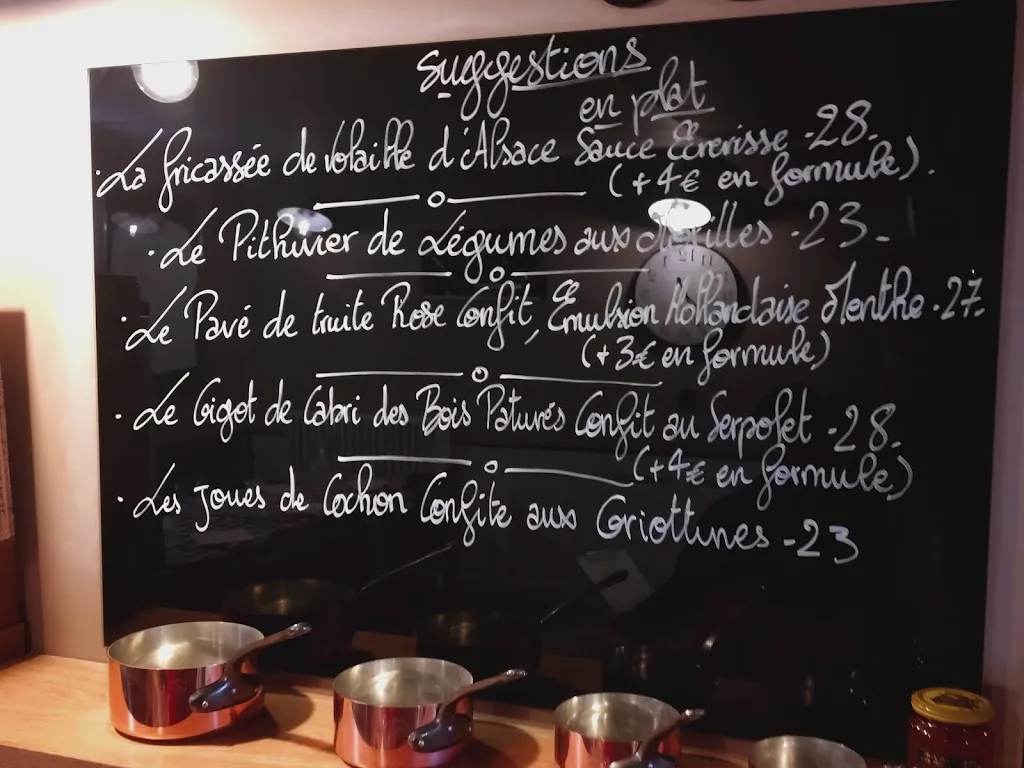 Suggestions
en plat
· La fricassée de volaille d'Alsace Sauce Écrevisse - 28.
(+ 4€ en formule).
· Le Pithivier de Légumes aux Morilles - 23 -
· Le Pavé de truite Rose Confit, Émulsion Hollandaise Menthe - 27.
(+ 3€ en formule)
· Le Gigot de Cabri des Bois Paturés Confit au Serpolet - 28.
(+ 4€ en formule)
· Les Joues de Cochon Confite aux Griottines - 23